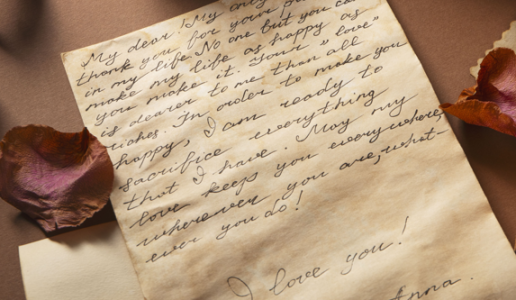 My dear! My only
thank you for your
in my life. No one but you can
make my life as happy as
you make it. Your "love"
is dearer to me than all
riches. In order to make you
happy, I am ready to
sacrifice everything
that I have. May my
love keeps you everywhere,
wherever you are, what-
ever you do!
I love you!
Anna.